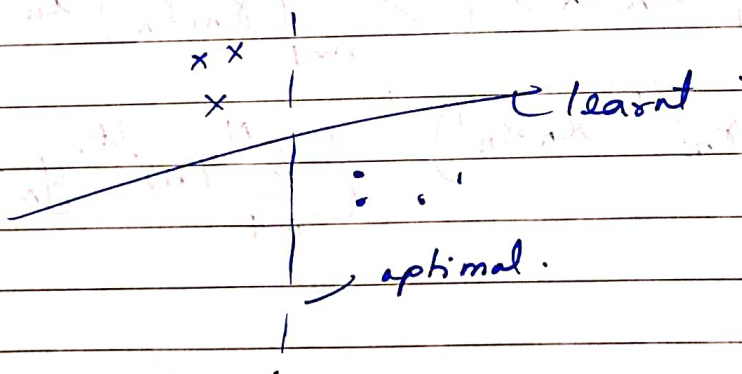 learnt
optimal.